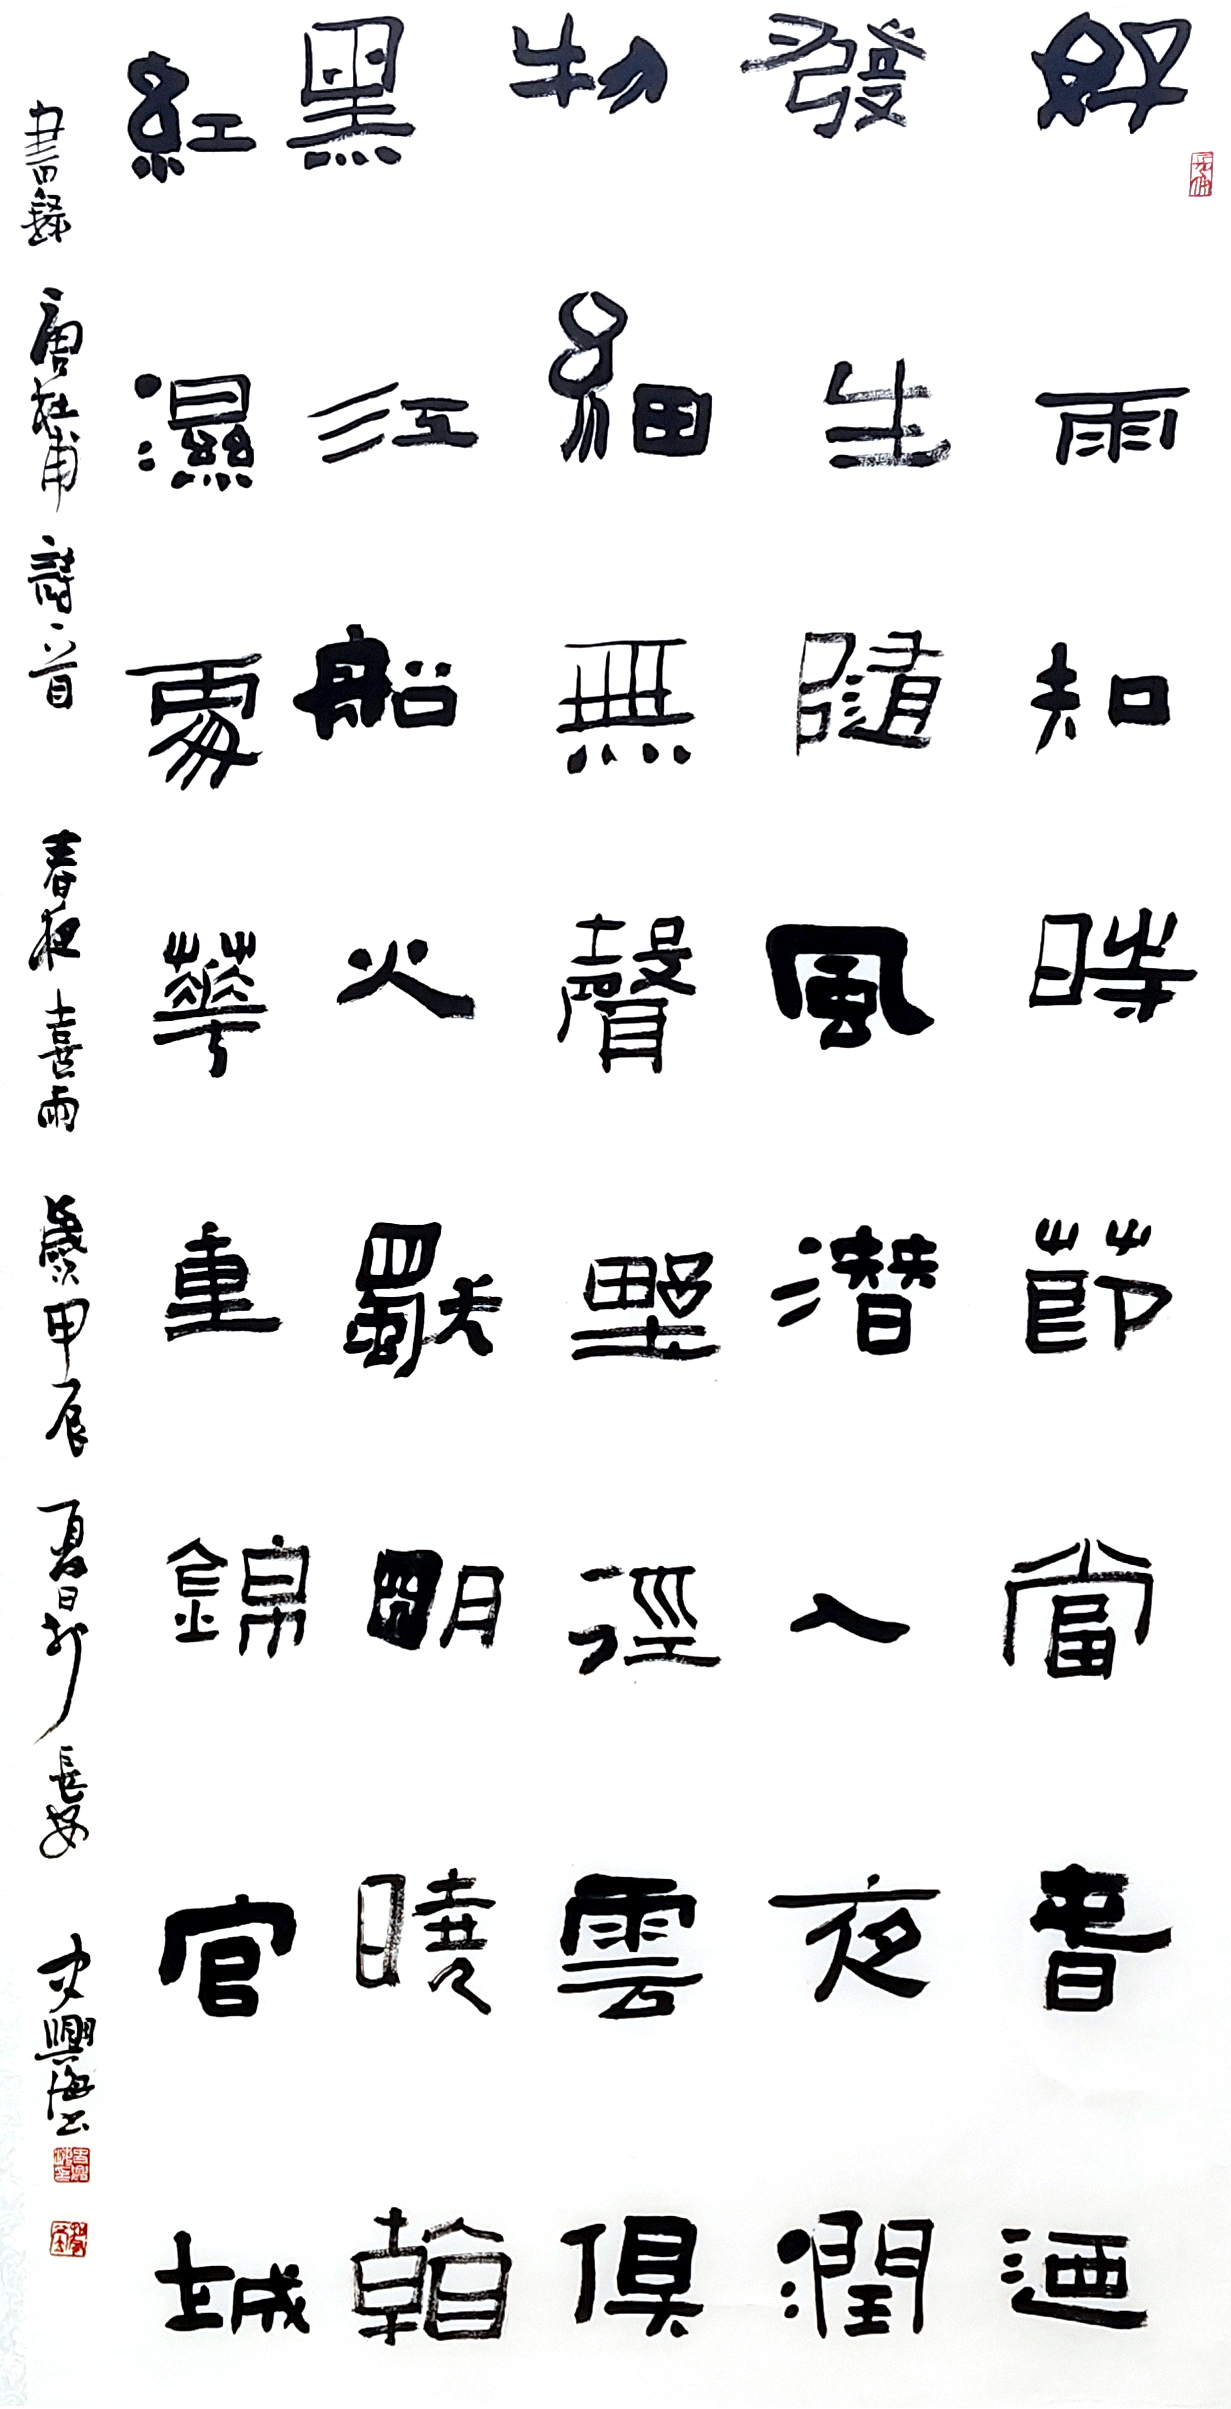 好雨知時節當春迺
發生隨風潛入夜潤
物細無聲野徑雲俱
黑江船火獨明曉看
紅濕處華重錦官城
書錄唐杜甫詩一首春夜喜雨歲甲辰夏日於長安史興海書